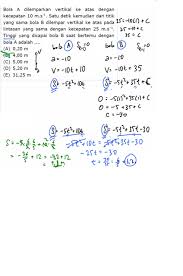 Bola A dilemparkan vertikal ke atas dengan
kecepatan 10 m.s⁻¹. Satu detik kemudian dari titik
yang sama bola B dilempar vertikal ke atas pada
lintasan yang sama dengan kecepatan 25 m.s⁻¹.
Tinggi yang dicapai bola B saat bertemu dengan
bola A adalah ....
(A) 0,20 m
4,00 m
(C) 5,00 m
(D) 5,20 m
(E) 31,25 m
25 = -10(1) + C
25 = -10 + C
35 = C
bola A
a = -10
v = -10t + 10
S = -5t² + 10t
bola B
a = -10
v = -10t + 35
S = -5t² + 35t + C
0 = -5(1) + 35(1) + C
0 = -5 + 35 + C
C = -30
-5t² + 10t = -5t² + 35t - 30
-25t = -30